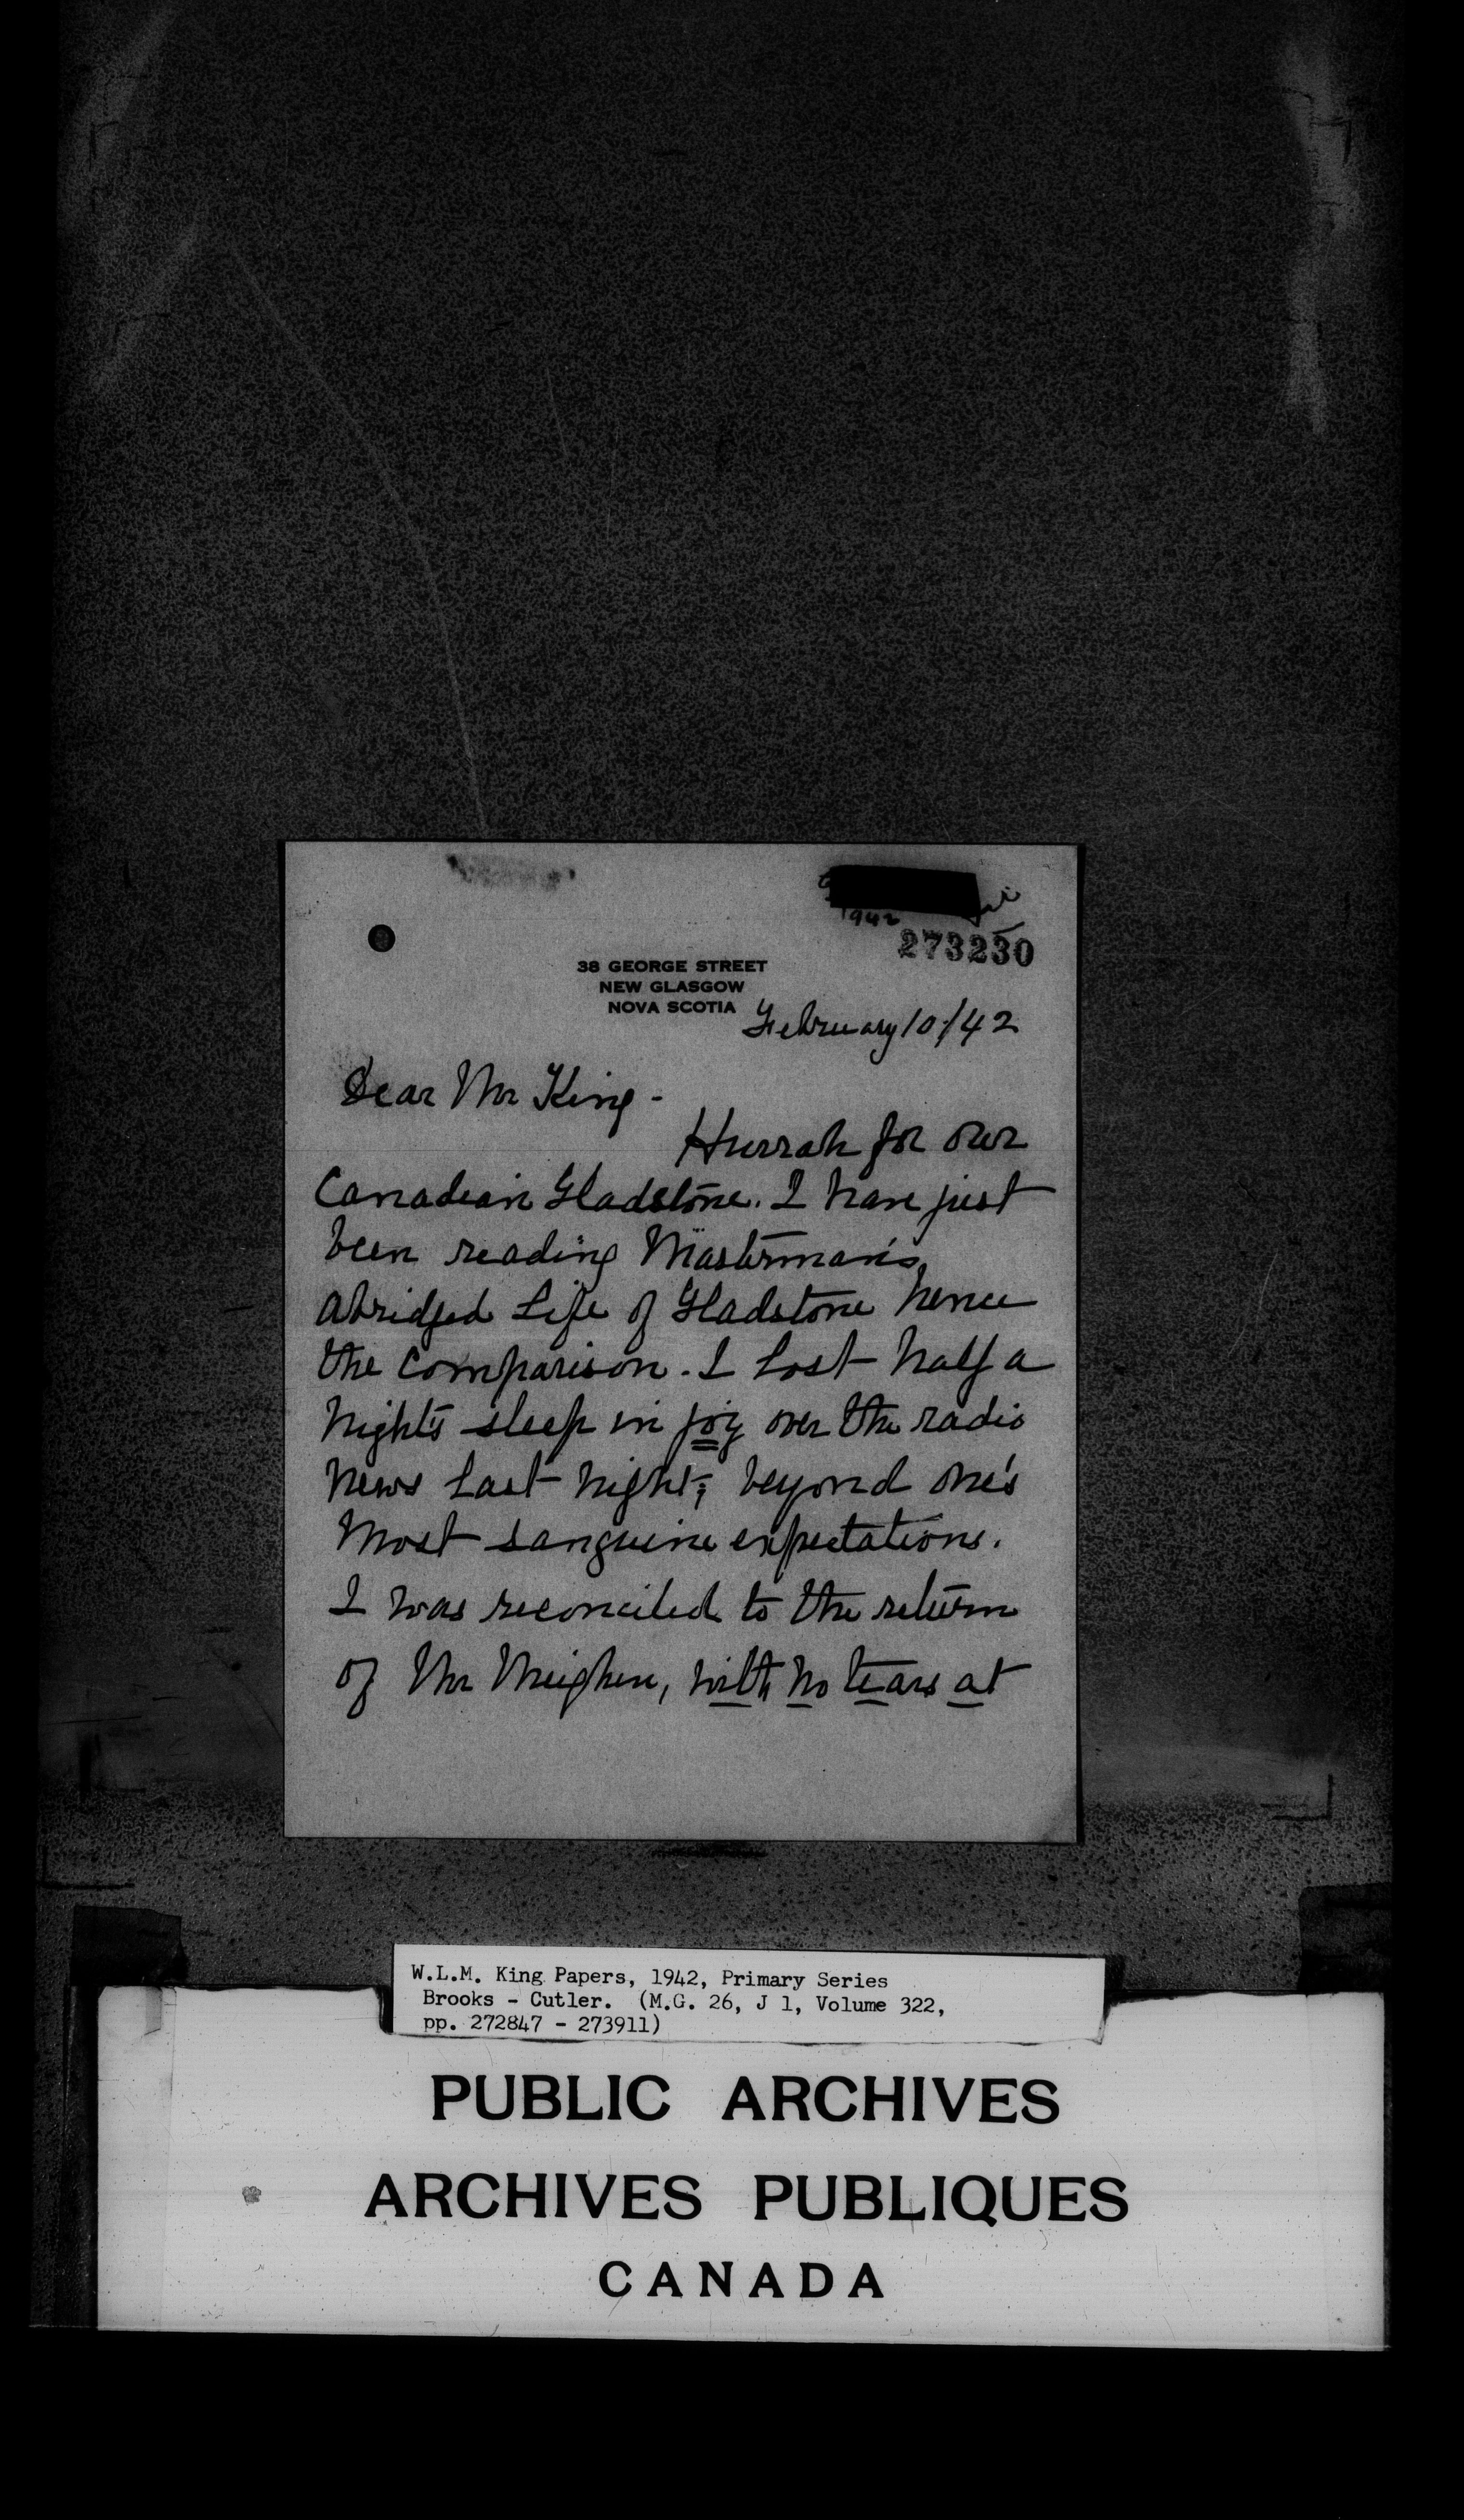 1942
273230
38 GEORGE STREET
NEW GLASGOW
NOVA SCOTIA
February 10/42
Dear Mr King -
Hurrah for our
Canadian Gladstone. I have just
been reading Masterman's
abridged Life of Gladstone hence
the comparison. I lost half a
night's sleep in joy over the radio
news last night; beyond one's
most sanguine expectations.
I was reconciled to the return
of Mr Meighen, with no tears at
W.L.M. King Papers, 1942, Primary Series
Brooks - Cutler. (M.G. 26, J 1, Volume 322,
pp. 272847 - 273911)
PUBLIC ARCHIVES
ARCHIVES PUBLIQUES
CANADA